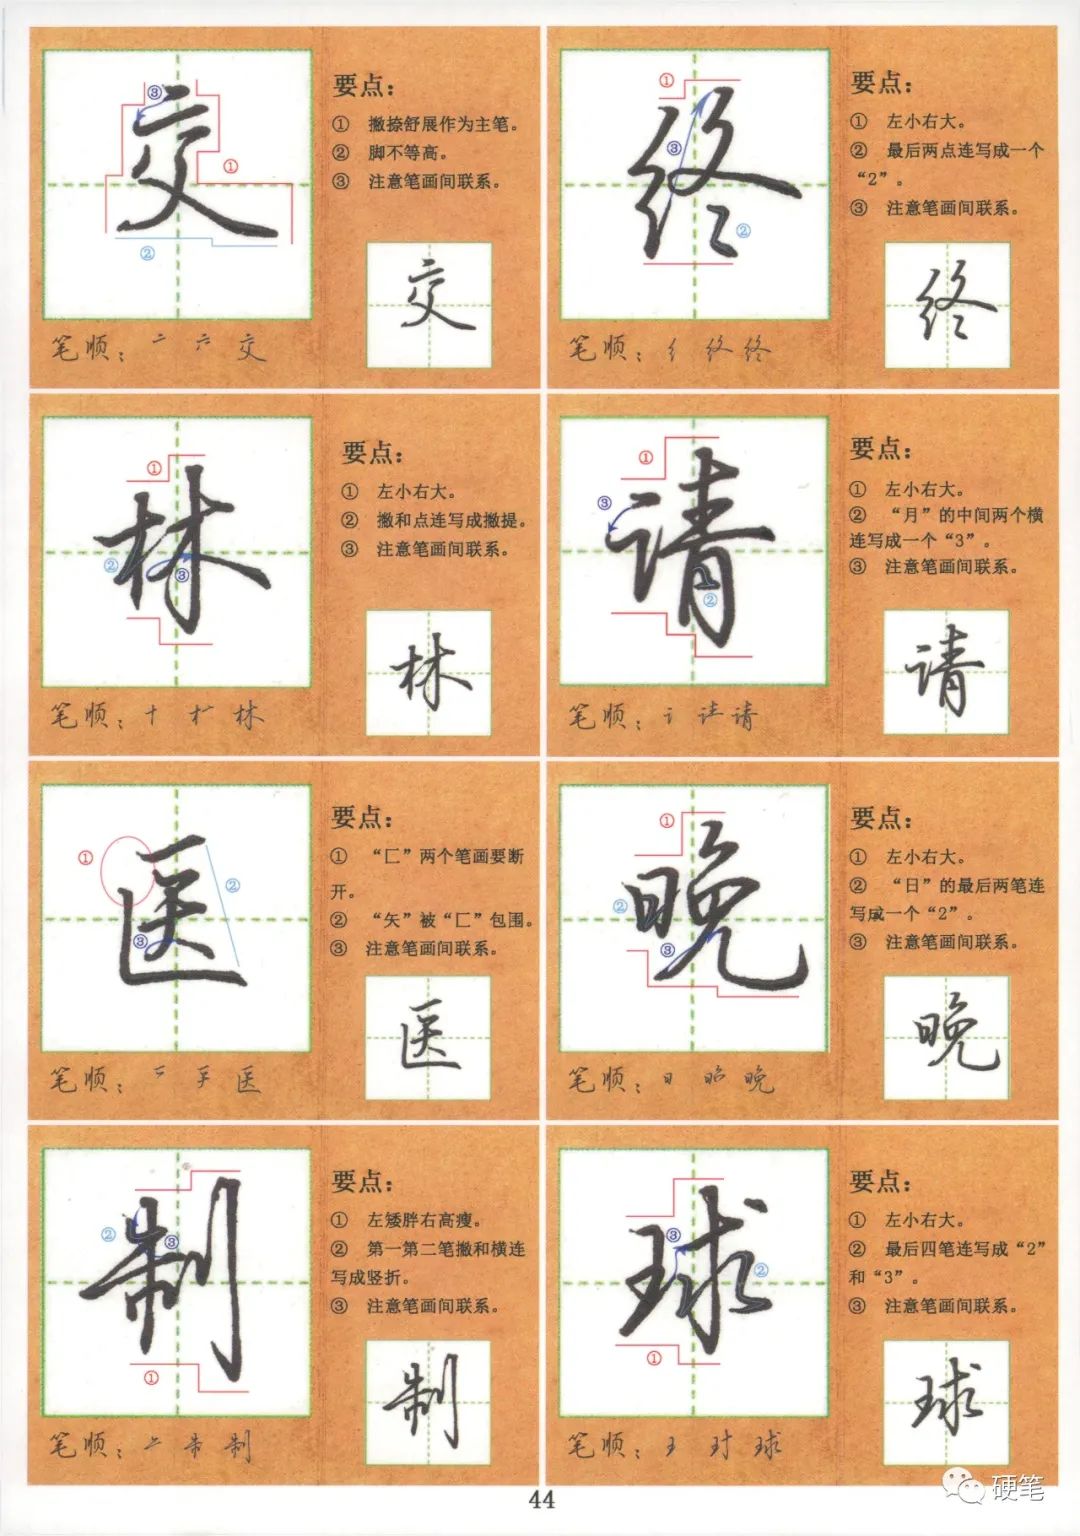 交
要点：
① 撇捺舒展作为主笔。
② 脚不等高。
③ 注意笔画间联系。
交
笔顺：亠 六 交
终
要点：
① 左小右大。
② 最后两点连写成一个
“2”。
③ 注意笔画间联系。
终
笔顺：纟 终 终
林
要点：
① 左小右大。
② 撇和点连写成撇提。
③ 注意笔画间联系。
林
笔顺：十 木 林
请
要点：
① 左小右大。
② “月”的中间两个横
连写成一个“3”。
③ 注意笔画间联系。
请
笔顺：讠 请
医
要点：
① “匚”两个笔画要断
开。
② “矢”被“匚”包围。
③ 注意笔画间联系。
医
笔顺：医
晚
要点：
① 左小右大。
② “日”的最后两笔连
写成一个“2”。
③ 注意笔画间联系。
晚
笔顺：日 晚
制
要点：
① 左矮胖右高瘦。
② 第一第二笔撇和横连
写成竖折。
③ 注意笔画间联系。
制
笔顺：制
球
要点：
① 左小右大。
② 最后四笔连写成“2”
和“3”。
③ 注意笔画间联系。
球
笔顺：王 球
44
硬笔